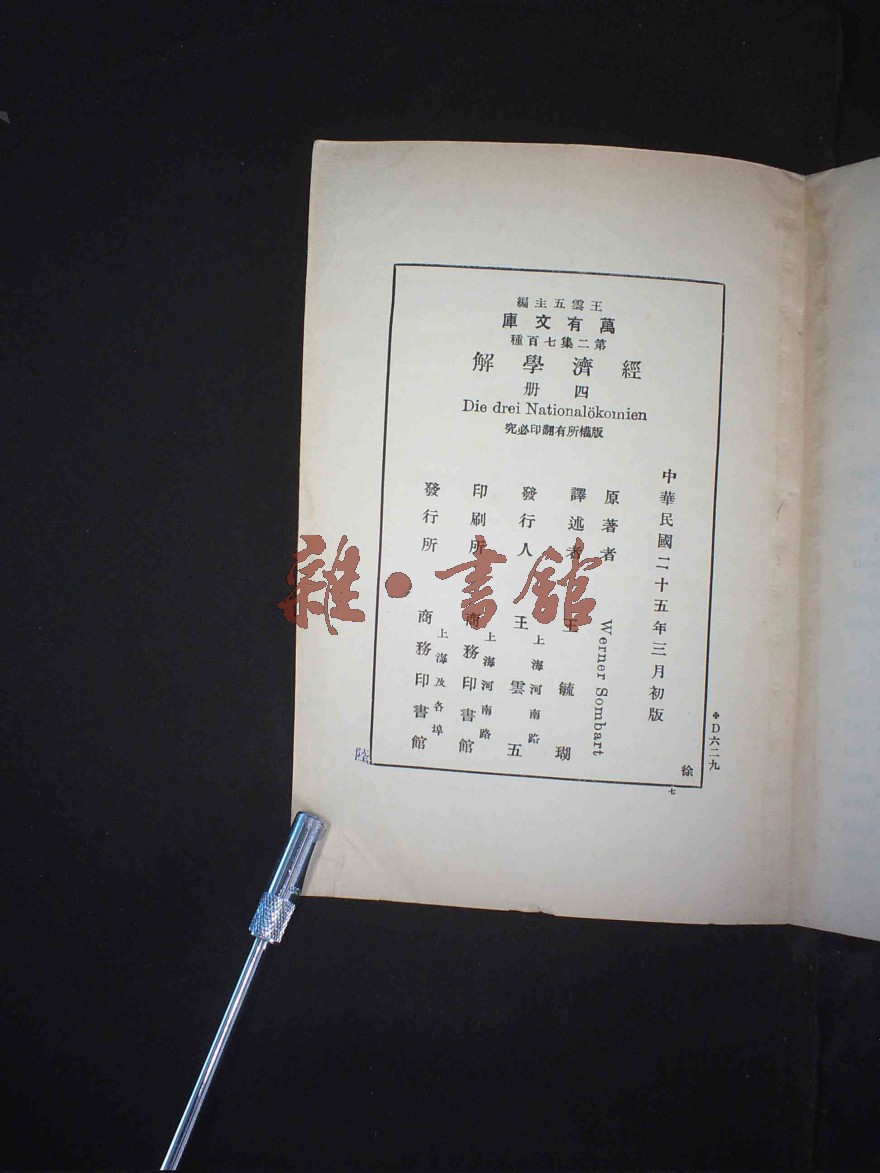 王雲五主編
萬有文庫
第二集七百種
經濟學解
四册
Die drei Nationalökomien
版權所有翻印必究
中華民國二十五年三月初版
原著者 Werner Sombart
譯述者 王毓瑚
發行人 王雲五
上海河南路
印刷所 商務印書館
上海河南路
發行所 商務印書館
上海及各埠
✣D六二九
徐
七
陸
雜·書館